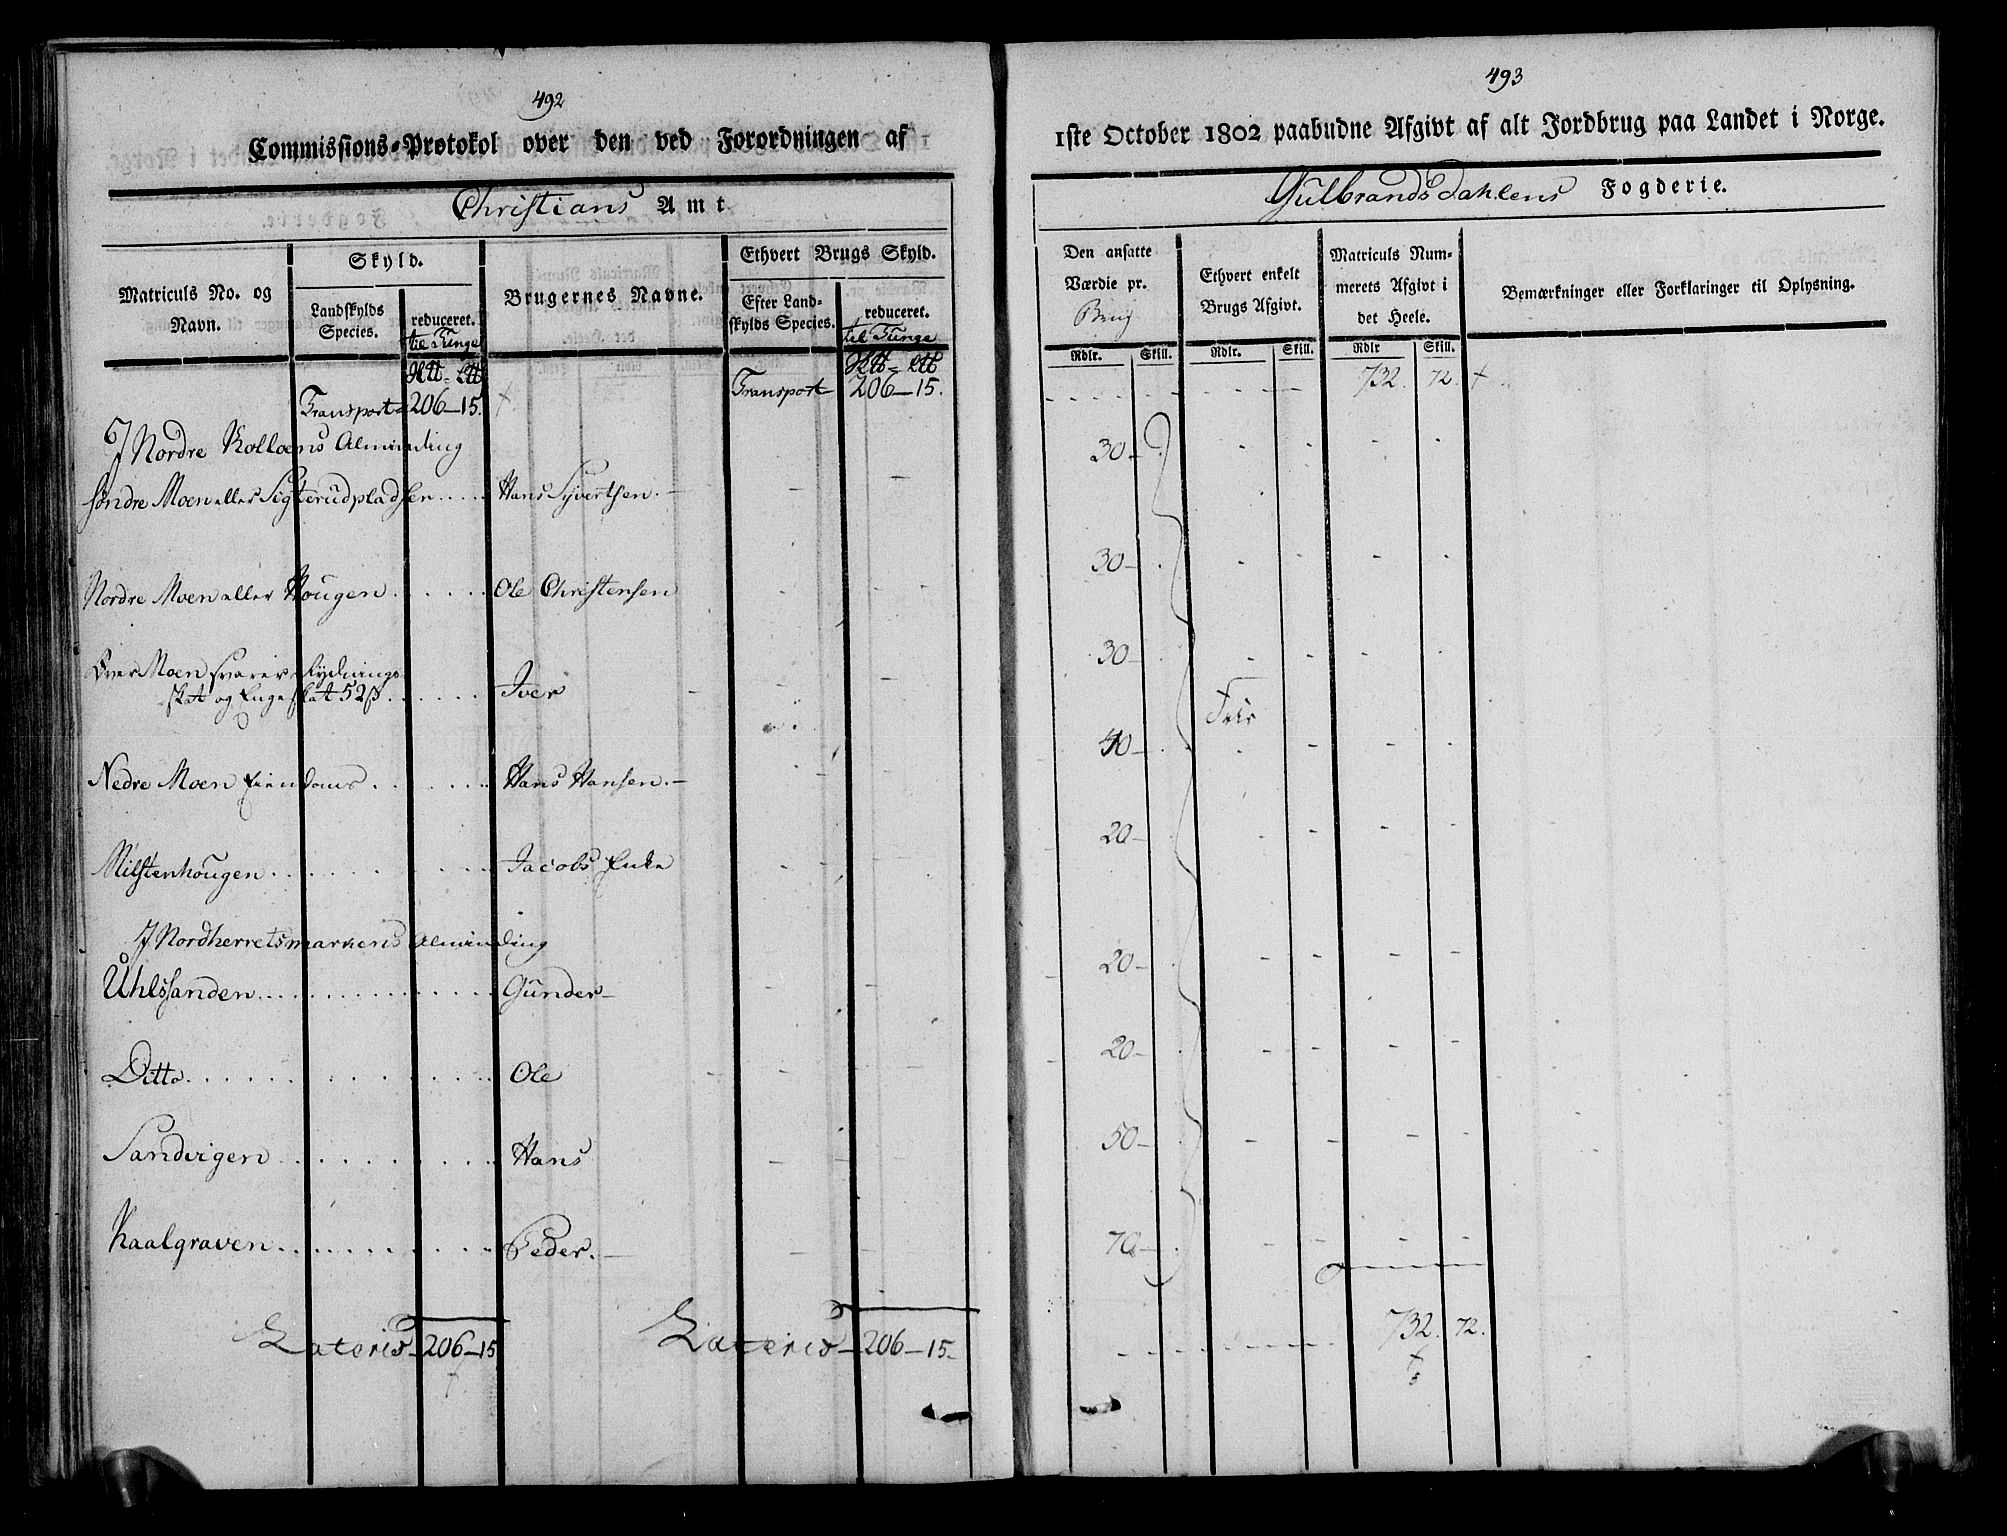 492
Commissions-Protokol over den ved Forordningen af
Christians Amt
Matriculs No. og Navn.
Skyld.
Landskylds Species.
reduceret.
til Tunge
Brugernes Navne.
Ethvert Brugs Skyld.
Efter Landskylds Species.
reduceret.
til Tunge
Transport 206 - 15.
Transport 206 - 15.
I Nordre Kolloens Alminding
Søndre Moen eller Sigterudpladsen . . . . Hans Syvertsen. -
Nordre Moen eller Hougen . . . . . Ole Christensen
Øver Moen svarer Rydnings
skat og Engeskat 52 ß . . . . . Iver
Nedre Moen Eiendoms . . . . . . Hans Hansen. -
Milstenhougen . . . . . . . . Jacobs Enke
I Nordherretsmarkens Alminding
Uhlssanden . . . . . . . . Gunder -
Ditto . . . . . . . . . . Ole
Sandvigen . . . . . . . . Hans
Kaalgraven . . . . . . . . Peder. -
Lateris 206 - 15
Lateris - 206 - 15 -
493
1ste October 1802 paabudne Afgivt af alt Jordbrug paa Landet i Norge.
Gulbrandsdahlens Fogderie.
Den ansatte Værdie pr.
Brug
Ethvert enkelt Brugs Afgivt.
Matriculs Nummerets Afgivt i det Heele.
Bemærkninger eller Forklaringer til Oplysning.
Rdlr. Skill. Rdlr. Skill. Rdlr Skill.
732. 72.
30 -
30 -
30 -
40 -
20 -
20 -
20 -
50 -
70 -
732. 72.